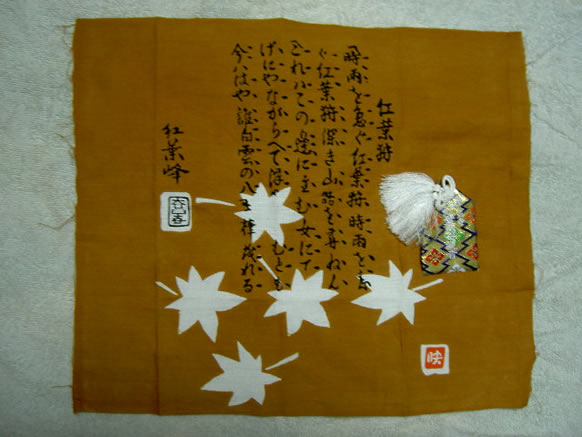 紅葉狩
時雨を急ぐ紅葉狩時雨を急
ぐ紅葉狩深き山路を尋ねん
これハこの邊に住む女にて
げにやながらへて浮 むとも
今ハはや誰白雲の八重葎茂れる
紅葉峰
映